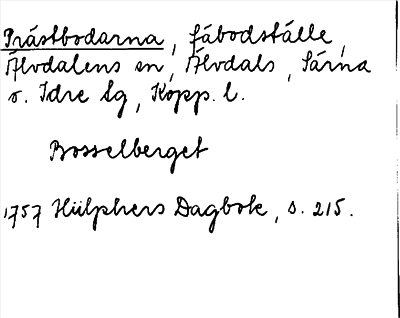 Prästbodarna, fäbodställe,
Älvdalens sn, Älvdals, Särna
o. Idre lg, Kopp. l.
Bosselberget
1757 Hülphers Dagbok, s. 215.